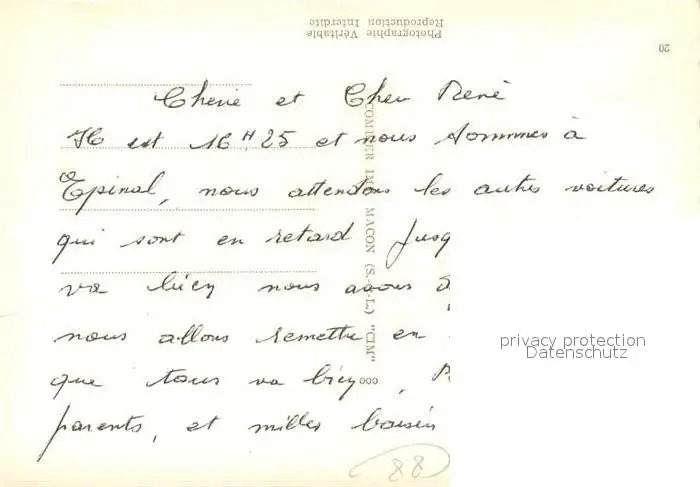 Photographie Véritable
Reproduction Interdite
20
COMBIER IMP. MACON (S.-&-L.) "CIM"
Cherie et Cher René
Il est 16 H 25 et nous sommes à
Epinal, nous attendons les autres voitures
qui sont en retard Jusq
va bien nous avons
nous allons remettre en
que tous va bien,
parents, et milles baisers
88
privacy protection
Datenschutz